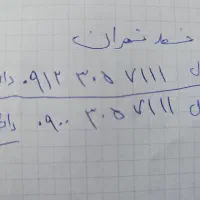 خط تهران
۰۹۱۲ ۳۰۵ ۷۱۱۱
۰۹۰۰ ۳۰۵ ۷۱۱۱